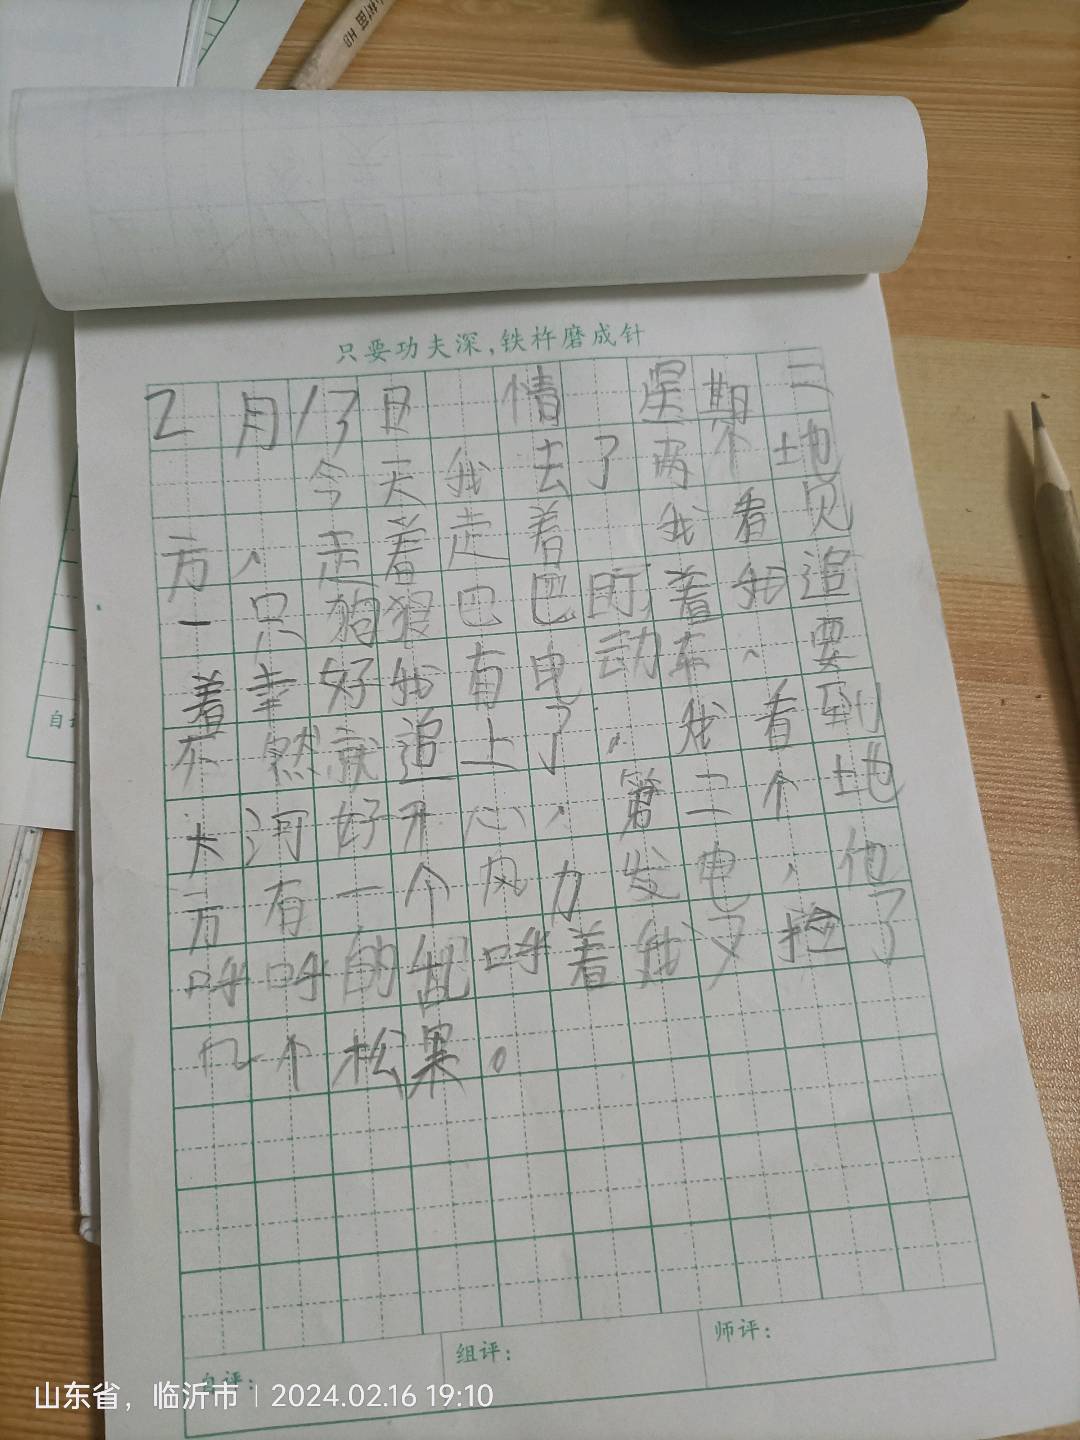 只要功夫深,铁杵磨成针
2月13日 情 星期二
今天我去了两个地
方、走着走着 我看见
一只狗狠巴巴盯着我追
着幸好我有电动车、要
不然就追上了。我看到
大河好开心、第二个地
方有一个风力发电,他
呼呼的乱呼着我又捡了
几个松果。
自评:
组评:
师评:
山东省,临沂市 | 2024.02.16 19:10